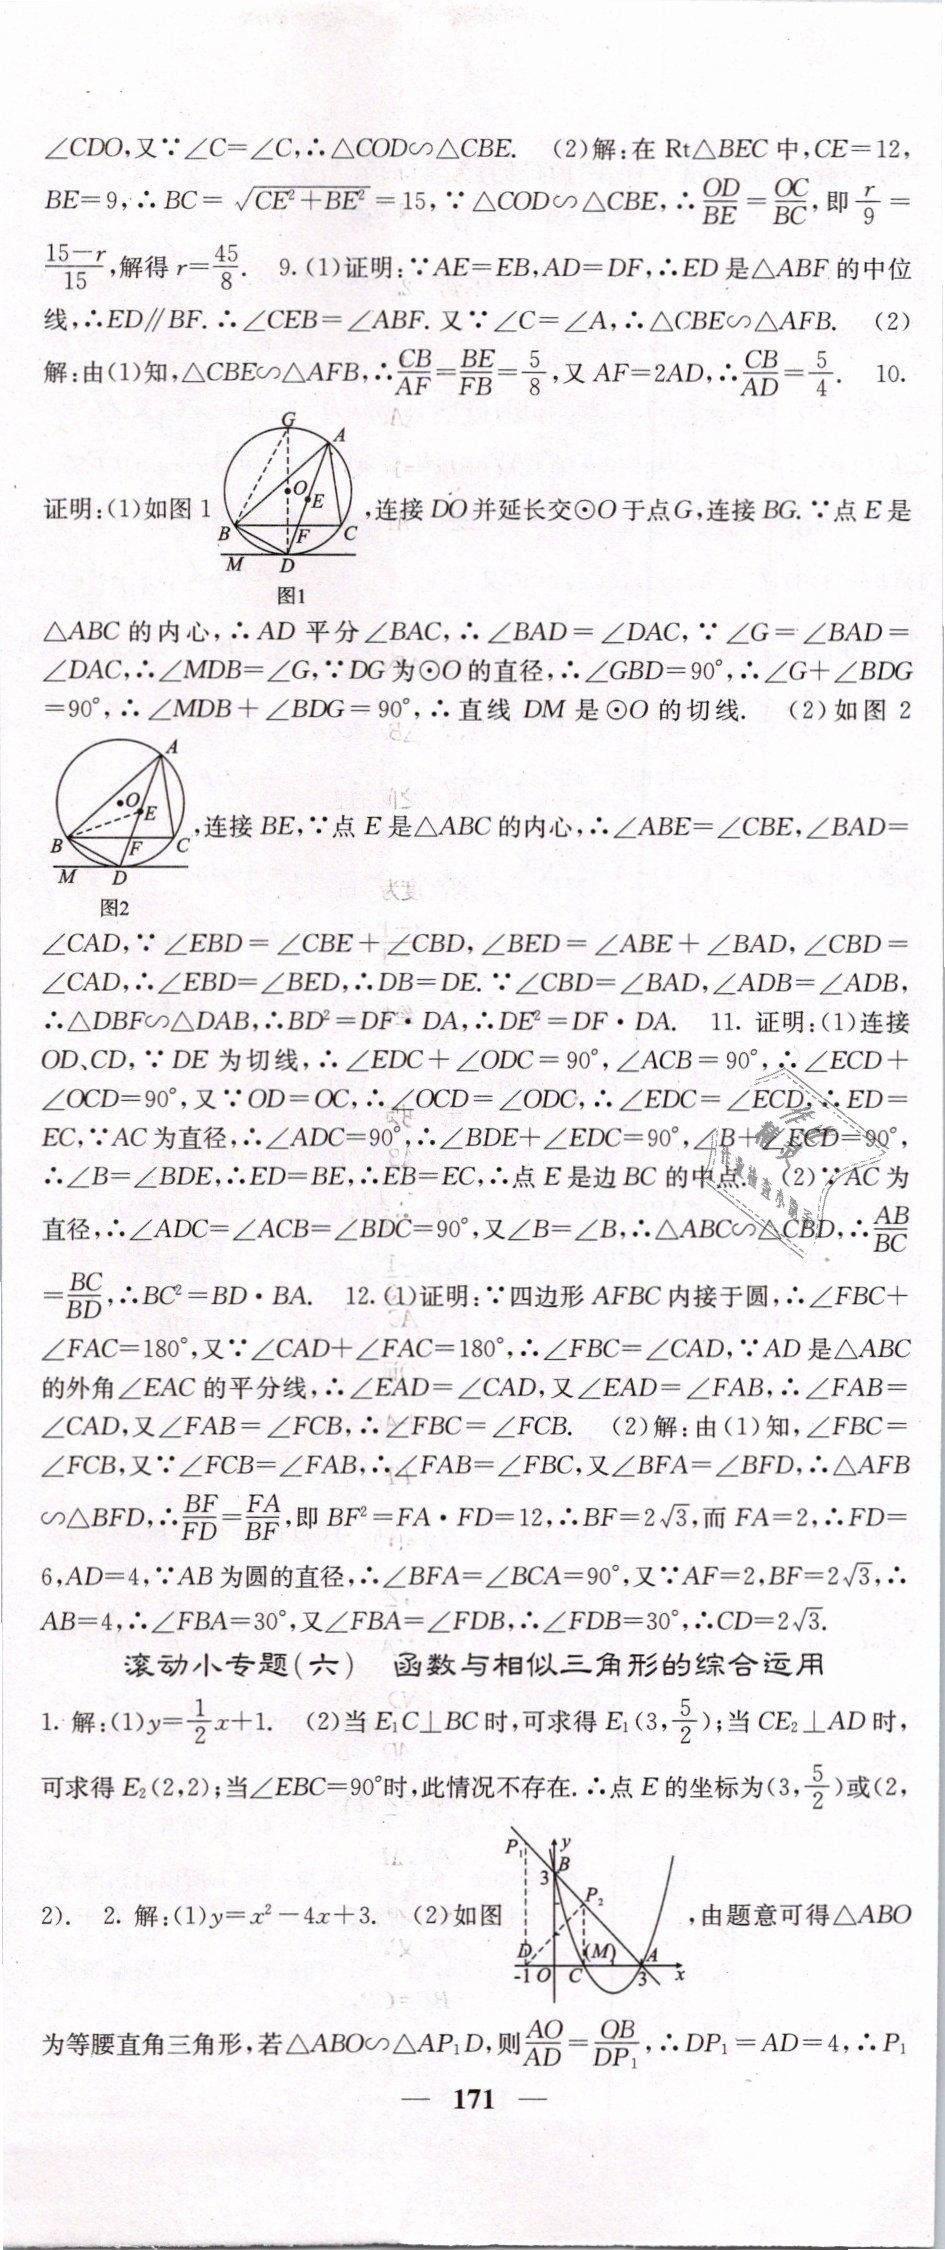 ∠CDO,又∵∠C=∠C,∴△COD∽△CBE. (2)解:在 Rt△BEC 中,CE=12,
BE=9,∴BC=√(CE²+BE²)=15,∵△COD∽△CBE,∴OD/BE=OC/BC,即 r/9=
(15-r)/15,解得 r=45/8. 9.(1)证明:∵AE=EB,AD=DF,∴ED 是△ABF 的中位
线,∴ED∥BF.∴∠CEB=∠ABF.又∵∠C=∠A,∴△CBE∽△AFB. (2)
解:由(1)知,△CBE∽△AFB,∴CB/AF=BE/FB=5/8,又 AF=2AD,∴CB/AD=5/4. 10.
G
A
O
E
B
F
C
M
D
图1
证明:(1)如图 1 ,连接 DO 并延长交⊙O 于点 G,连接 BG.∵点 E 是
△ABC 的内心,∴AD 平分∠BAC,∴∠BAD=∠DAC,∵∠G=∠BAD=
∠DAC,∴∠MDB=∠G,∵DG 为⊙O 的直径,∴∠GBD=90°,∴∠G+∠BDG
=90°,∴∠MDB+∠BDG=90°,∴直线 DM 是⊙O 的切线. (2)如图 2
A
O
E
B
F
C
M
D
图2
,连接 BE,∵点 E 是△ABC 的内心,∴∠ABE=∠CBE,∠BAD=
∠CAD,∵∠EBD=∠CBE+∠CBD,∠BED=∠ABE+∠BAD,∠CBD=
∠CAD,∴∠EBD=∠BED,∴DB=DE.∵∠CBD=∠BAD,∠ADB=∠ADB,
∴△DBF∽△DAB,∴BD²=DF·DA,∴DE²=DF·DA. 11. 证明:(1)连接
OD、CD,∵DE 为切线,∴∠EDC+∠ODC=90°,∠ACB=90°,∴∠ECD+
∠OCD=90°,又∵OD=OC,∴∠OCD=∠ODC,∴∠EDC=∠ECD,∴ED=
EC,∵AC 为直径,∴∠ADC=90°,∴∠BDE+∠EDC=90°,∠B+∠ECD=90°,
∴∠B=∠BDE,∴ED=BE,∴EB=EC,∴点 E 是边 BC 的中点. (2)∵AC 为
直径,∴∠ADC=∠ACB=∠BDC=90°,又∠B=∠B,∴△ABC∽△CBD,∴AB/BC
=BC/BD,∴BC²=BD·BA. 12.(1)证明:∵四边形 AFBC 内接于圆,∴∠FBC+
∠FAC=180°,又∵∠CAD+∠FAC=180°,∴∠FBC=∠CAD,∵AD 是△ABC
的外角∠EAC 的平分线,∴∠EAD=∠CAD,又∠EAD=∠FAB,∴∠FAB=
∠CAD,又∠FAB=∠FCB,∴∠FBC=∠FCB. (2)解:由(1)知,∠FBC=
∠FCB,又∵∠FCB=∠FAB,∴∠FAB=∠FBC,又∠BFA=∠BFD,∴△AFB
∽△BFD,∴BF/FD=FA/BF,即 BF²=FA·FD=12,∴BF=2√3,而 FA=2,∴FD=
6,AD=4,∵AB 为圆的直径,∴∠BFA=∠BCA=90°,又∵AF=2,BF=2√3,∴
AB=4,∴∠FBA=30°,又∠FBA=∠FDB,∴∠FDB=30°,∴CD=2√3.
滚动小专题(六) 函数与相似三角形的综合运用
1. 解:(1)y=1/2x+1. (2)当 E₁C⊥BC 时,可求得 E₁(3,5/2);当 CE₂⊥AD 时,
可求得 E₂(2,2);当∠EBC=90°时,此情况不存在.∴点 E 的坐标为(3,5/2)或(2,
P₁
y
3
B
P₂
D
(M)
A
-1
O
C
3
x
2). 2. 解:(1)y=x²-4x+3. (2)如图 ,由题意可得△ABO
为等腰直角三角形,若△ABO∽△AP₁D,则AO/AD=OB/DP₁,∴DP₁=AD=4,∴P₁
— 171 —